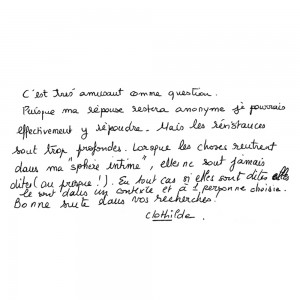 C'est très amusant comme question.
Puisque ma réponse restera anonyme je pourrais
effectivement y répondre. Mais les résistances
sont trop profondes. Lorsque les choses rentrent
dans ma "sphère intime", elles ne sont jamais
dites (ou presque !). En tout cas si elles sont dites elles
le sont dans un contexte et à 1 personne choisie.
Bonne suite dans vos recherches.
Clothilde.